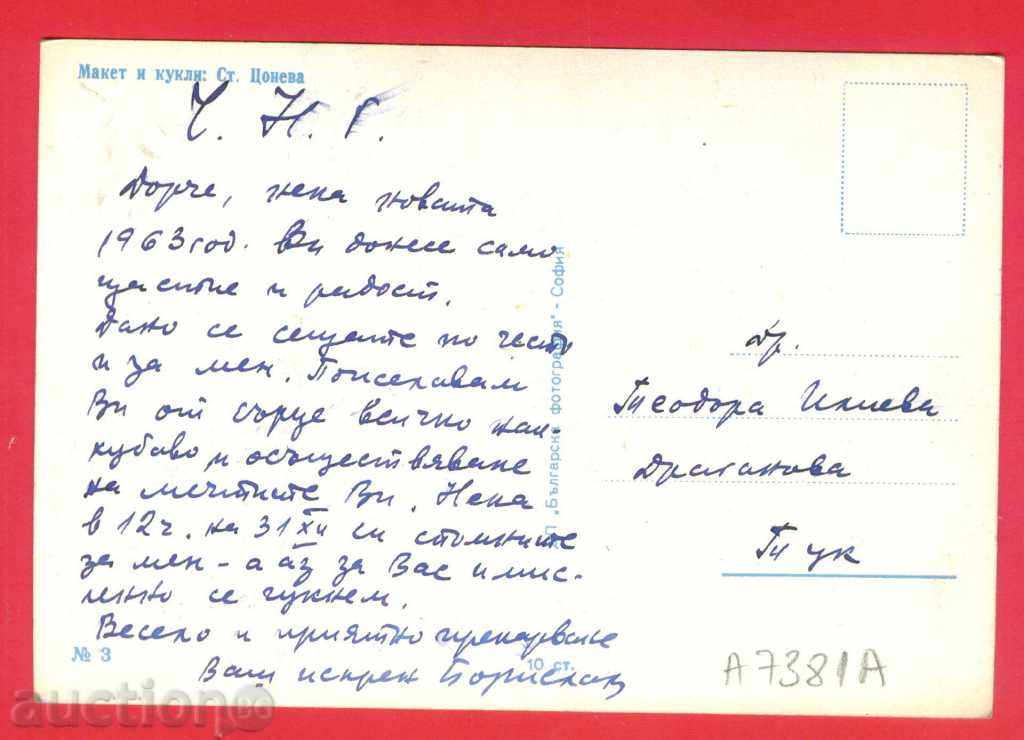 Макет и кукли: Ст. Цонева
Ч. Н. Г.
Дорче, нека новата
1963 год. Ви донесе само
щастие и радост.
Дано се сещате по често
и за мен. Пожелавам
Ви от сърце всичко най-
хубаво и осъществяване
на мечтите Ви. Нека
в 12 ч. на 31 XII си спомните
за мен – а аз за Вас и мис-
лено се чукнем.
Весело и приятно прекарване
Ваш искрен
№ 3
10 ст.
ДП „Българска фотография" - София
Др.
Теодора Илиева
Драганова
Тук
A7381A
auction.bg